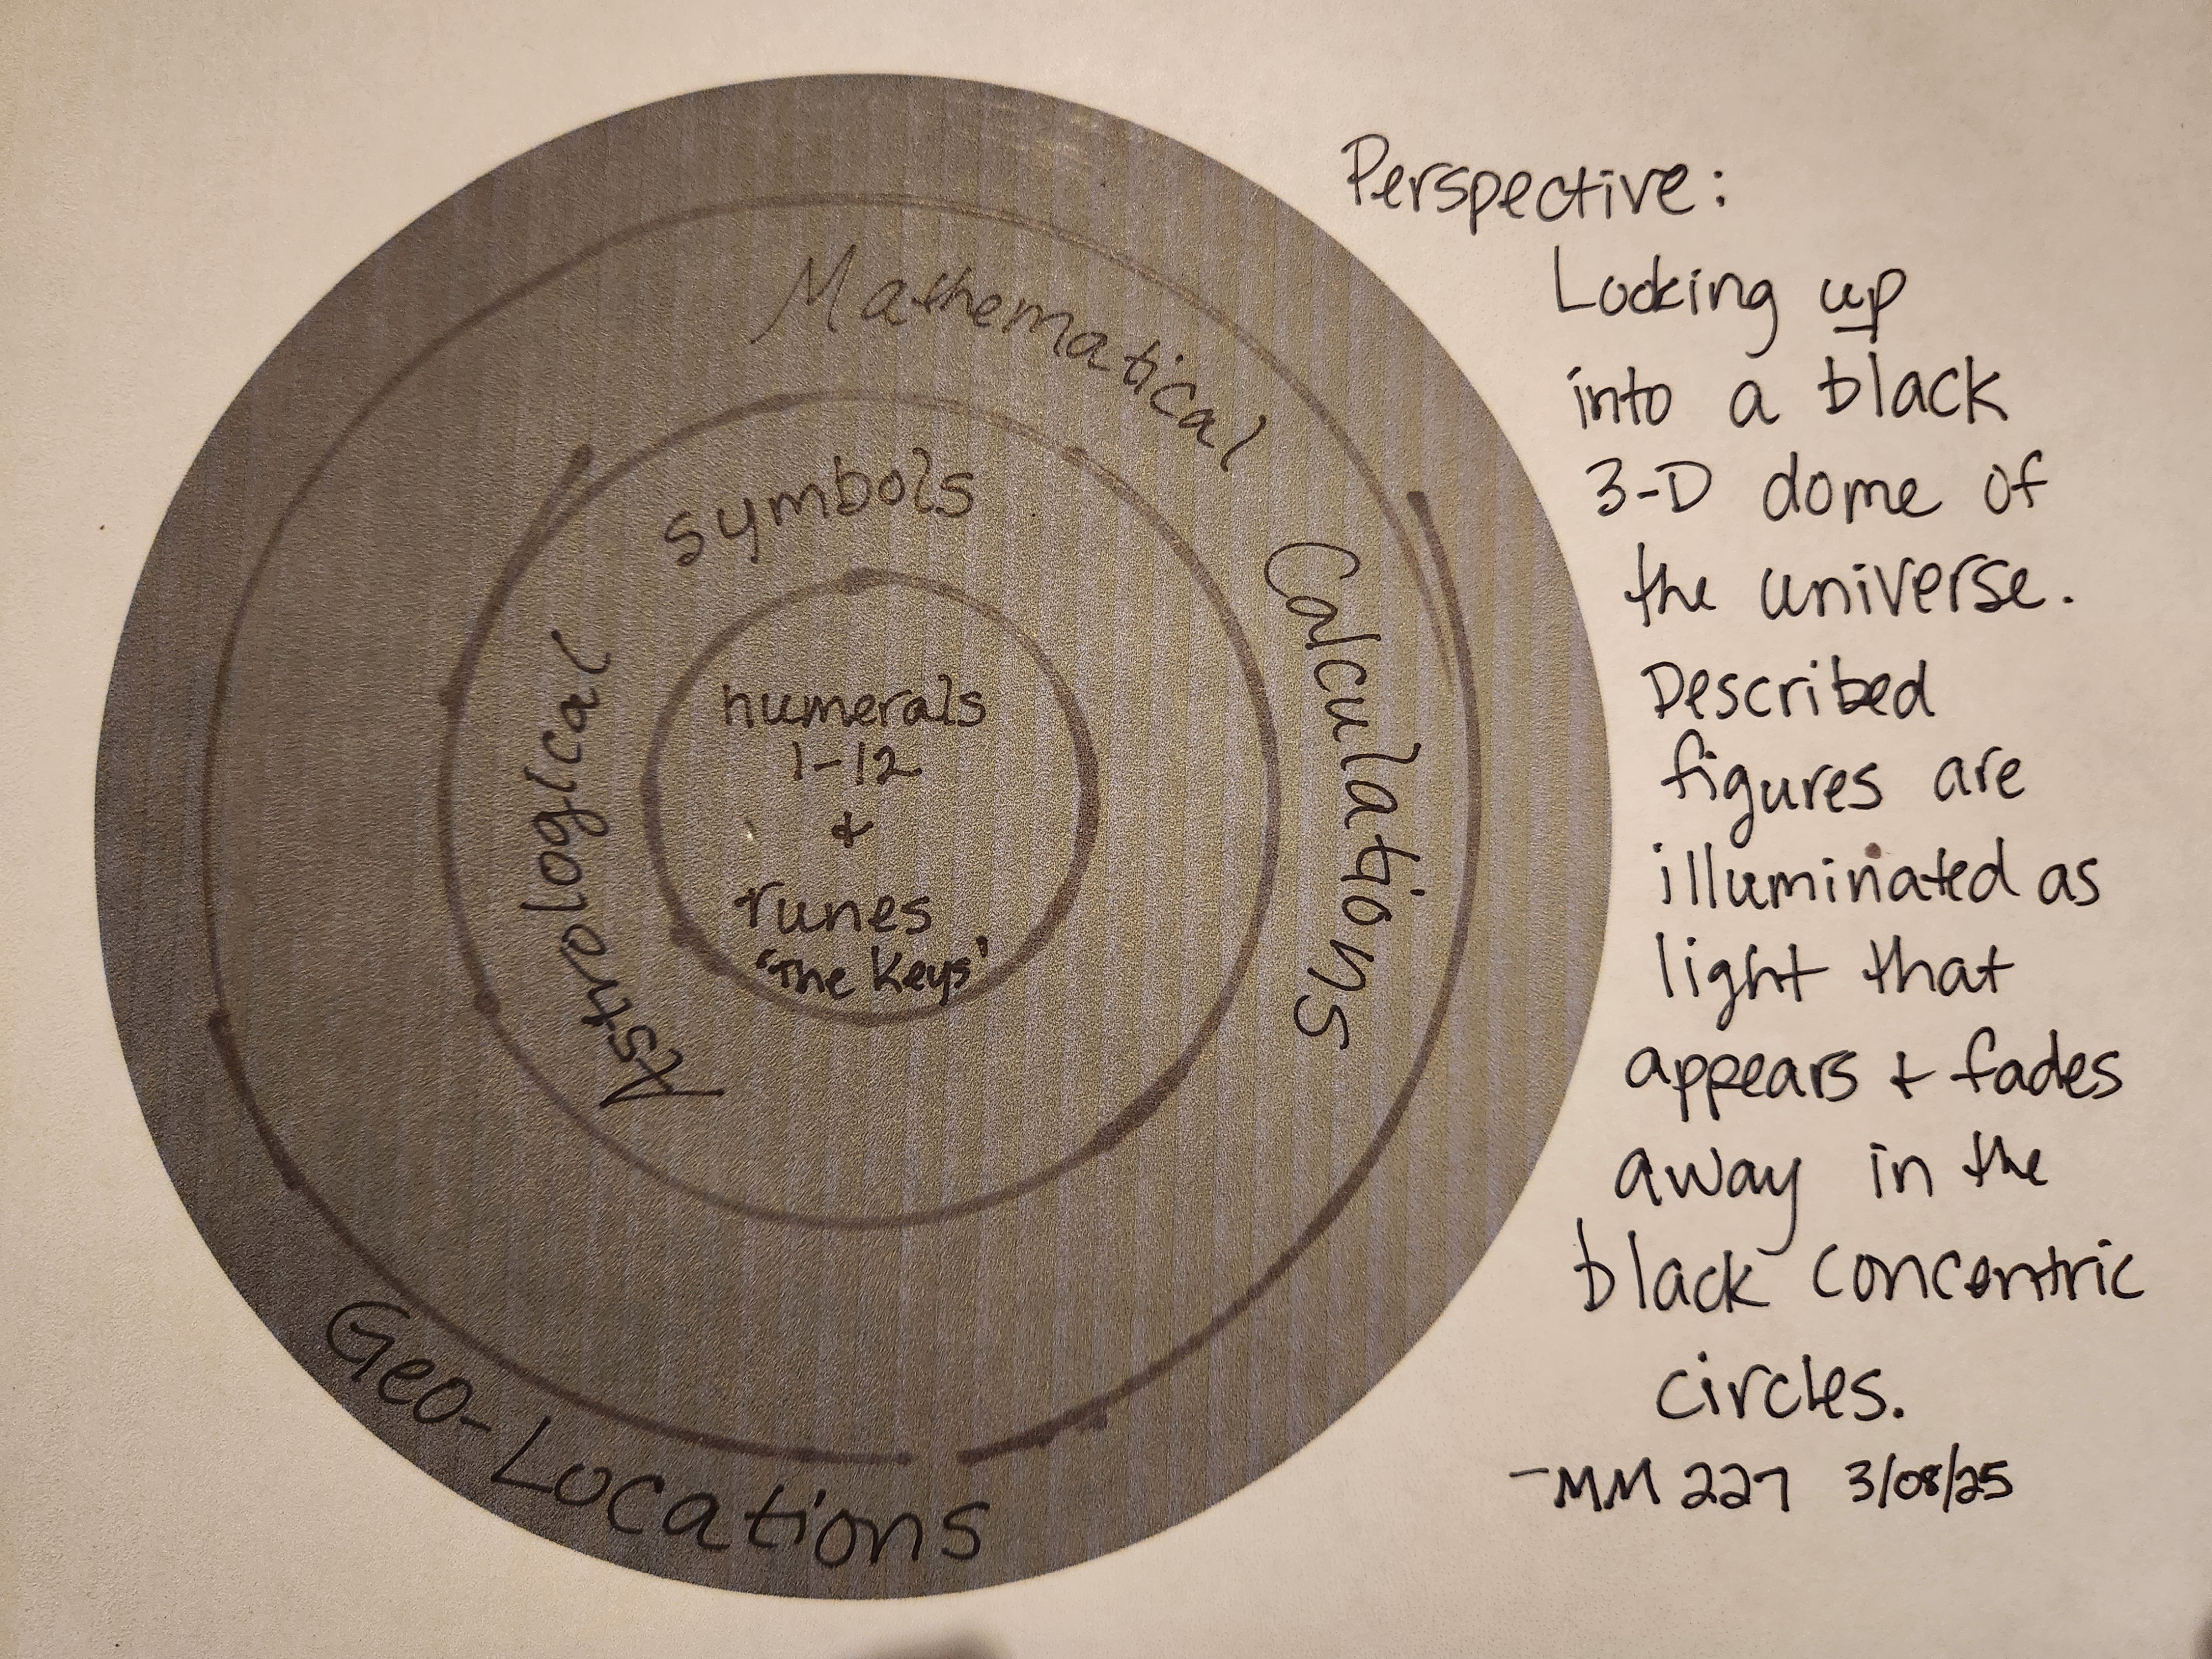 Perspective:
Looking up
into a black
3-D dome of
the universe.
Described
figures are
illuminated as
light that
appears & fades
away in the
black concentric
circles.
-MM 227 3/08/25
Mathematical
Calculations
Astrological
symbols
numerals
1-12
&
runes
'The Keys'
Geo-Locations